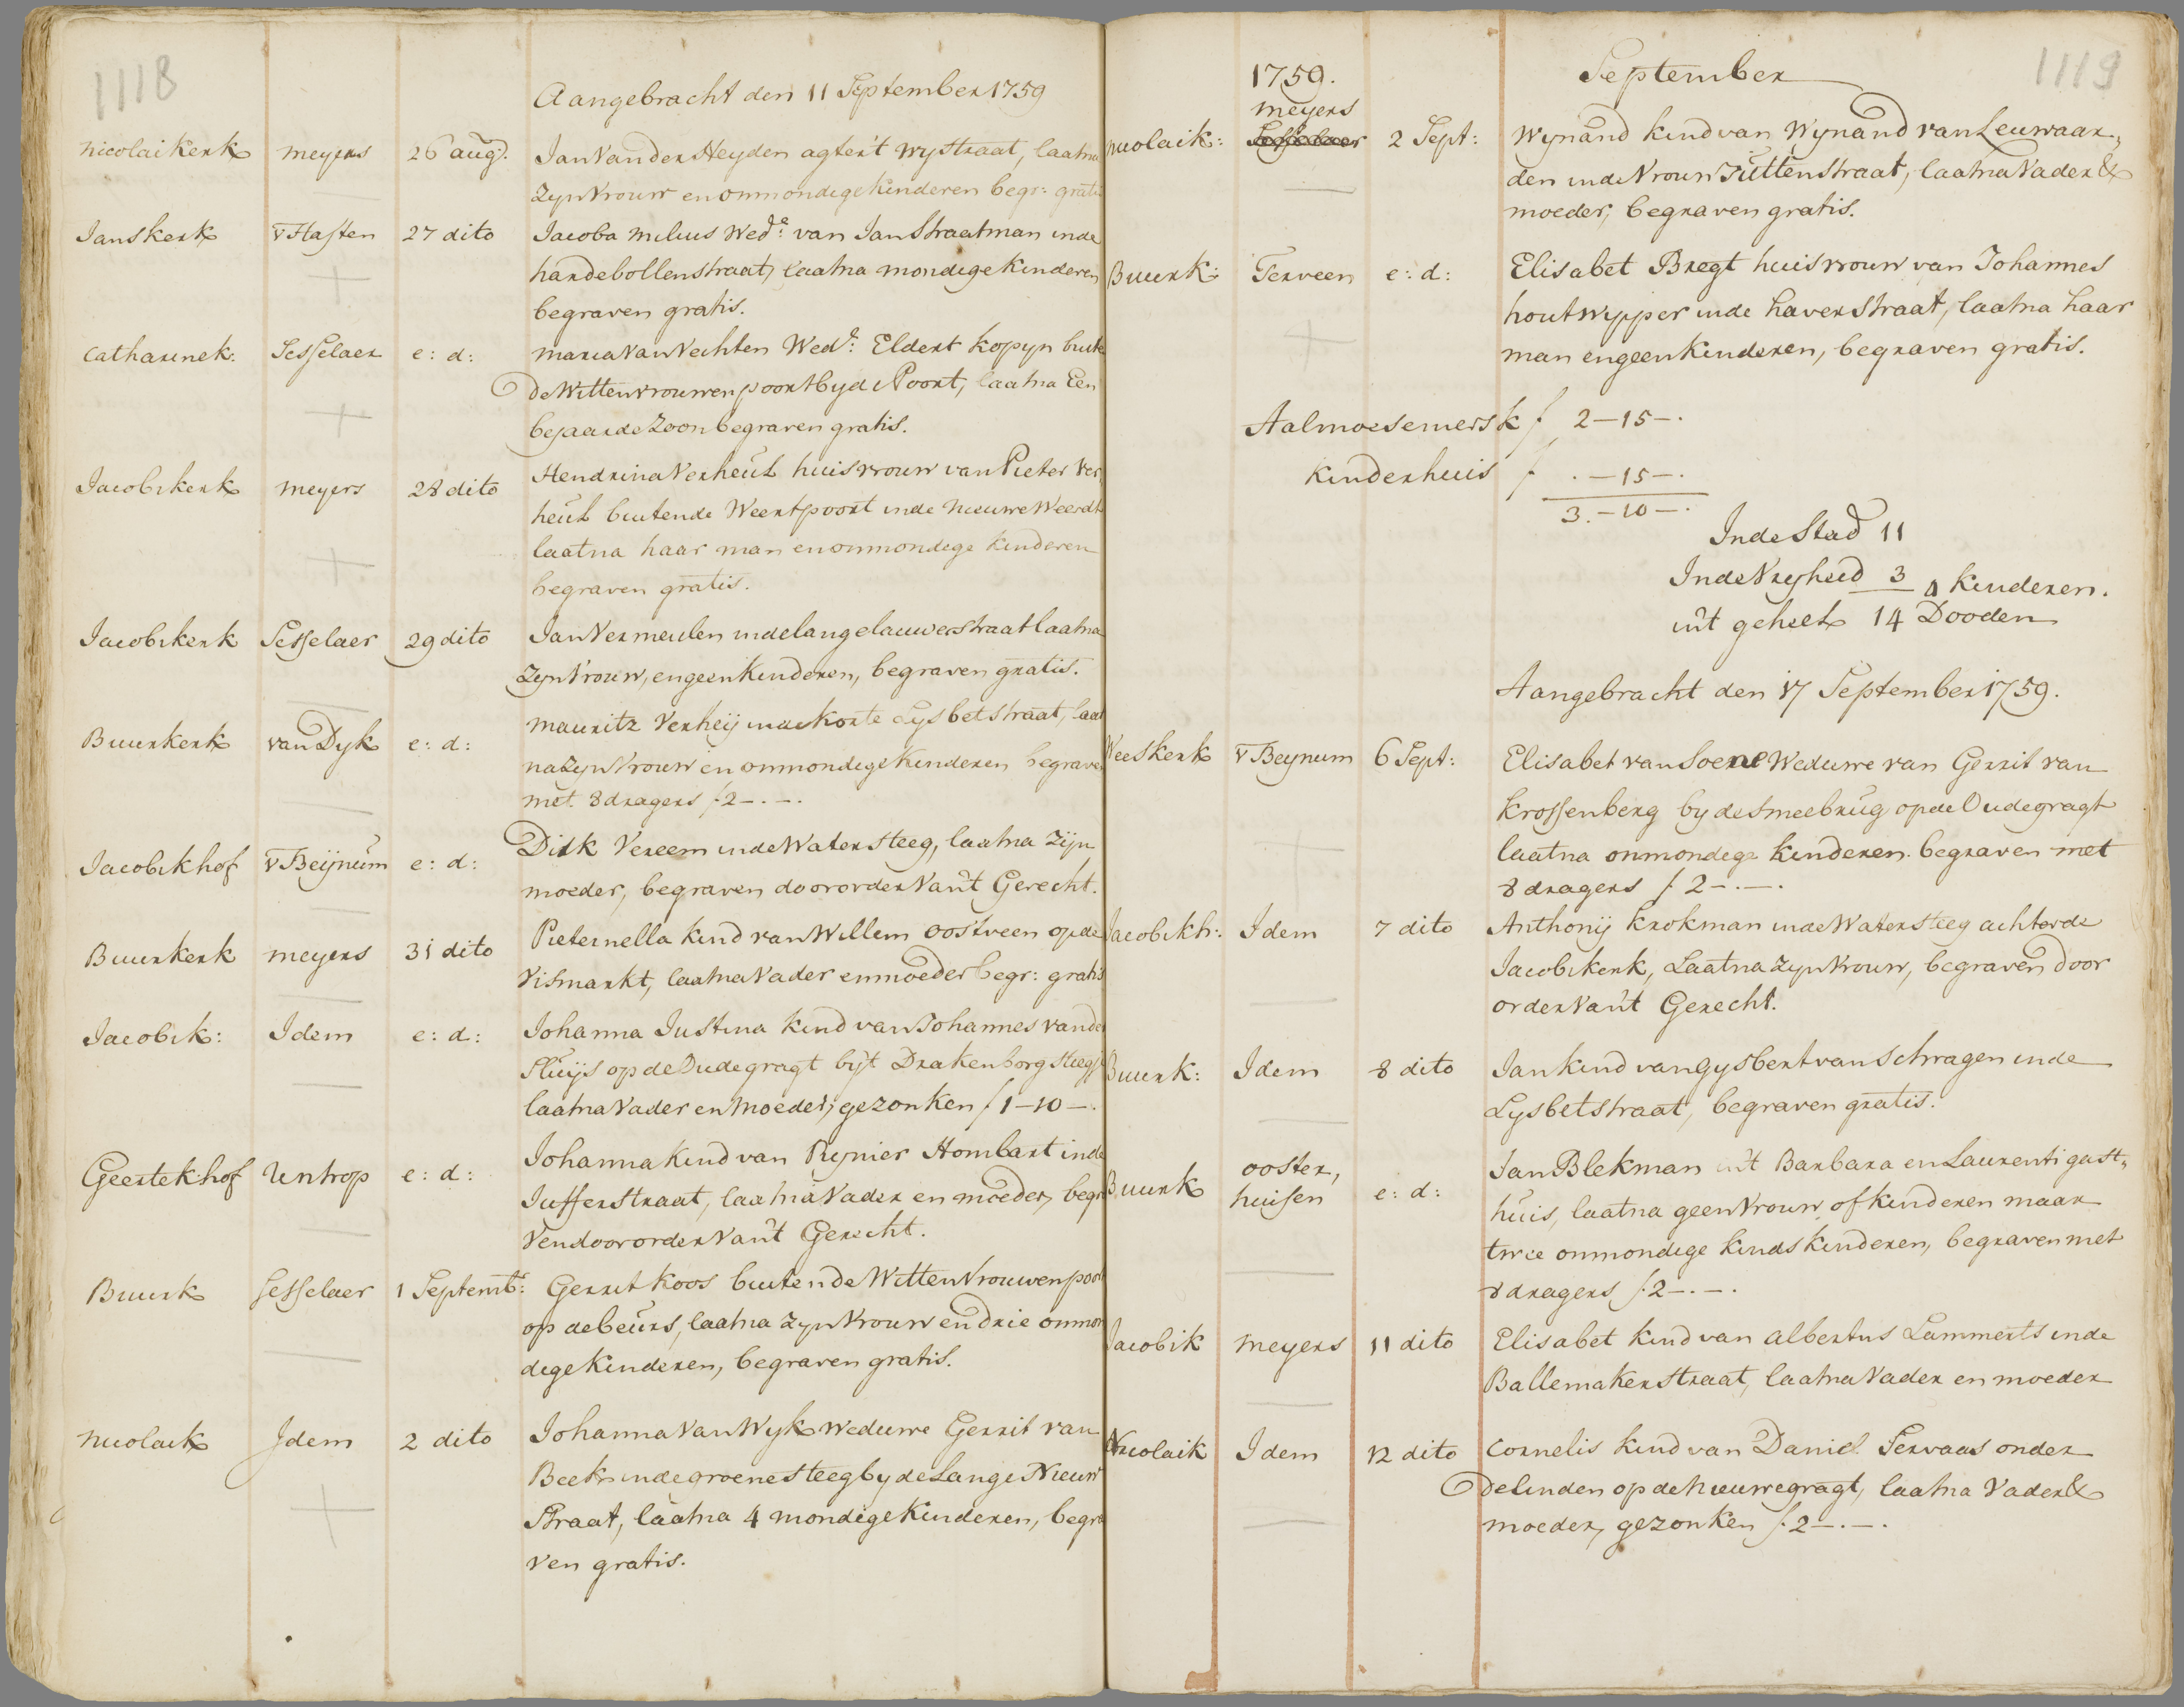 1118
Aangebracht den 11 September 1759
Nicolaikerk meyers 26 aug. Jan van der Heyden agter't Wystraat, laatna
Zyn Vrouw en onmondige kinderen begr: gratis
Janskerk v Hasten 27 dito Jacoba Milius Wed.e van Jan Straatman inde
hardebollenstraat, laatna mondige kinderen
begraven gratis.
Catharinek: Sesselaer e: d: maria van Vechten Wed.e Eldert Kopyn buite
de Wittevrouwen poort by de Poort, laatna Een
bejaarde Zoon begraven gratis.
Jacobikerk meyers 28 dito Hendrina Verheul huisvrouw van Pieter Ver
heul buitende Weertpoort inde Nieuwe Weerdt
laatna haar man en onmondige kinderen
begraven gratis.
Jacobikerk Sesselaer 29 dito Jan Vermeulen inde lange lauwerstraat laatna
Zyn Vrouw, en geen kinderen, begraven gratis.
Buurkerk van Dyk e: d: mauritz Verheij inde Korte Lysbetstraat, laat
na Zyn Vrouw en onmondige kinderen begraven
met 8 dragers f 2-.-.
Jacobikhof v Beijnum e: d: Dirk Vereem inde Watersteeg, laatna Zijn
moeder, begraven door order van't Gerecht.
Buurkerk meyers 31 dito Pieternella kind van Willem Oostveen op de
Vismarkt, laatna Vader en moeder begr: gratis
Jacobik: Idem e: d: Johanna Justina kind van Johannes vander
Sluijs op de Oudegragt by't Drakenborg steegje
laatna Vader en Moeder, gezonken f 1-10-.
Geertekhof Untrop e: d: Johanna kind van Reynier Hombart inde
Jufferstraat, laatna Vader en moeder, begra
ven door order van't Gerecht.
Buurk Sesselaer 1 Septembr: Gerrit Koos buiten de Witten Vrouwenpoort
op de beurs, laatna Zyn Vrouw en drie onmon
dige kinderen, begraven gratis.
Nicolaik Idem 2 dito Johanna van Wyk weduwe Gerrit van
Beek inde groene steeg by de Lange Nieuw
Straat, laatna 4 mondige kinderen, begra
ven gratis.
1759. September 1119
meyers
Nicolaik: Sesselaer 2 Sept: Wynand kind van Wynand van Leuwaar„
den inde Vrouw Juttenstraat, laatna Vader &
moeder, begraven gratis.
Buurk: Terveen e: d: Elisabet Bregt huisvrouw van Johannes
houtwipper inde haverstraat, laatna haar
man en geen kinderen, begraven gratis.
Aalmoeseniersk f 2-15-.
Kinderhuis f .-15-.
3.-10-.
Inde Stad 11
Inde Vryheid 3 4 kinderen.
uit geheel 14 Dooden
Aangebracht den 17 September 1759.
Weeskerk v Beynum 6 Sept: Elisabet van Soene Weduwe van Gerrit van
Krossenberg by de Smeebrug op de Oudegragt
laatna onmondige kinderen. begraven met
8 dragers f 2-.-.
Jacobikh: Idem 7 dito Anthonij Krokman inde Watersteeg achter de
Jacobikerk, Laatna Zyn Vrouw, begraven door
order van't Gerecht.
Buurk: Idem 8 dito Jan kind van Gysbert van Schragen inde
Lysbetstraat, begraven gratis.
Buurk ooster, e: d: Jan Blekman uit Barbara en Laurenti gast„
huisen huis, laatna geen Vrouw of kinderen maar
twee onmondige kinds kinderen, begraven met
8 dragers f 2-.-.
Jacobik meyers 11 dito Elisabet kind van Albertus Lammerts inde
Ballemakerstraat, laatna Vader en moeder
Nicolaik Idem 12 dito Cornelis kind van Daniel Servaas onder
de linden op de Nieuwegragt, laatna Vader &
moeder, gezonken f 2-.-.